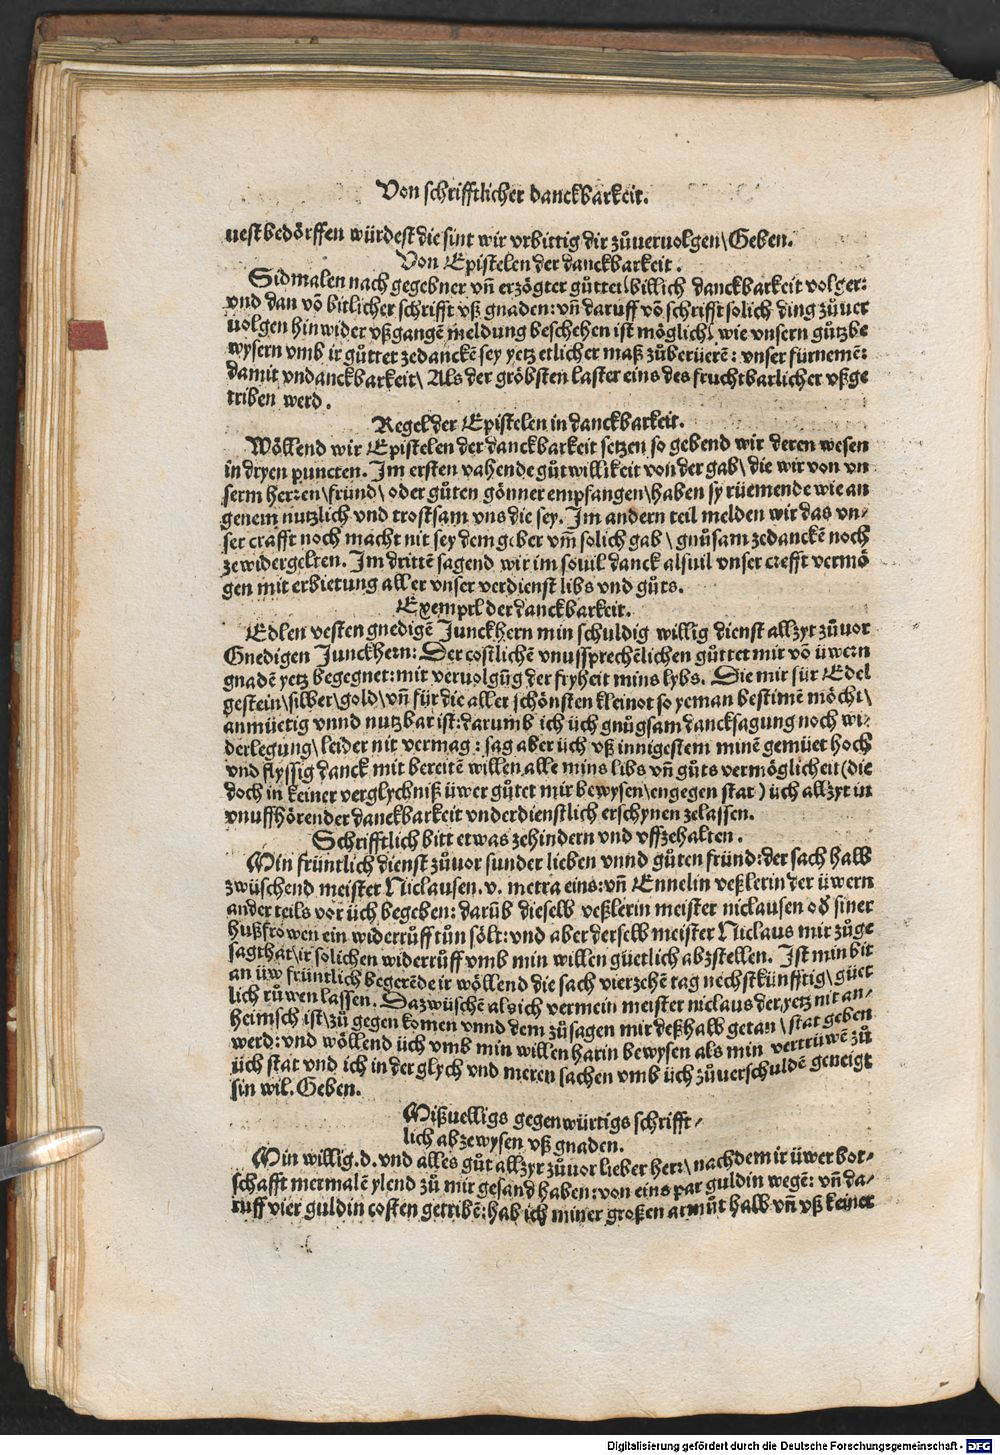 Von schrifftlicher danckbarkeit.
uest bedörffen würdest die sint wir vrbittig dir zůueruolgen\ Geben.
Von Epistelen der danckbarkeit.
Sidmalen nach gegebner vñ erzögter gůttet\ billich danckbarkeit volget:
vnd dan võ bitlicher schrifft vß gnaden: vñ daruff võ schrifft solich ding zůuer
uolgen hinwider vßgangē meldung beschehen ist möglich\ wie vnsern gůtzbe
wysern vmb ir gůttet zedanckē sey yetz etlicher maß zůberüerē: vnser fürnemē:
damit vndanckbarkeit\ Als der gröbsten laster eins des fruchtbarlicher vßge
triben werd.
Regel der Epistelen in danckbarkeit.
Wöllend wir Epistelen der danckbarkeit setzen so gebend wir deren wesen
in dryen puncten. Im ersten vahende gůtwillikeit von der gab\ die wir von vn
serm herren\ fründ\ oder gůten gönner empfangen\ haben sy rüemende wie an
genem nutzlich vnd trostsam vns die sey. Im andern teil melden wir das vn-
ser crafft noch macht nit sey dem geber vm̄ solich gab\ gnůsam zedanckē noch
zewidergelten. Im drittē sagend wir im souil danck alsuil vnser crefft vermö
gen mit erbietung aller vnser verdienst libs vnd gůts.
Exempel der danckbarkeit.
Edlen vesten gnedigē Junckhern min schuldig willig dienst allzyt zůuor
Gnedigen Junckhern: Der costlichē vnussprechēlichen gůttet mir võ üwern
gnadē yetz begegnet: mit veruolgūg der fryheit mins lybs. Die mir für Edel
gestein\ silber\ gold\ vñ für die aller schönsten kleinot so yeman bestimē möcht\
anmüetig vnnd nutzbar ist: darumb ich üch gnůgsam dancksagung noch wi-
derlegung\ leider nit vermag: sag aber üch vß innigestem minē gemüet hoch
vnd flyssig danck mit bereitē willen alle mins libs vñ gůts vermöglicheit (die
doch in keiner verglychniß üwer gůtet mir bewysen\ engegen stat) üch allzyt in
vnuffhörender danckbarkeit vnderdienstlich erschynen zelassen.
Schrifftlich bitt etwas zehindern vnd vffzehalten.
Min früntlich dienst zůuor sunder lieben vnnd gůten fründ: der sach halb
zwüschend meister Niclausen. v. metra eins: vñ Ennelin veßlerin der üwern
ander teils vor üch begeben: darūb dieselb veßlerin meister niclausen od̄ siner
hußfrowen ein widerrůff tůn sölt: vnd aber derselb meister Niclaus mir zůge
sagt hat\ ir solichen widerrůff vmb min willen güetlich abzstellen. Ist min bit
an üw früntlich begerēde ir wöllend die sach vierzehē tag nechstkünfftig\ güet
lich růwen lassen. Dazwüschē als ich vermein meister niclaus der yetz nit an-
heimsch ist\ zů gegen komen vnnd dem zůsagen mir deßhalb getan\ stat geben
werd: vnd wöllend üch vmb min willen harin bewysen als min vertrüwē zů
üch stat vnd ich in der glych vnd meren sachen vmb üch zůuerschuldē geneigt
sin wil. Geben.
Mißuelligs gegenwürtigs schrifft-
lich abzewysen vß gnaden.
Min willig. d. vnd alles gůt allzyt zůuor lieber herr\ nachdem ir üwer bot-
schafft mermalē ylend zů mir gesand haben: von eins par guldin wegē: vñ da-
ruff vier guldin costen getribē: hab ich miner großen armůt halb vñ vß keiner
Digitalisierung gefördert durch die Deutsche Forschungsgemeinschaft - DFG